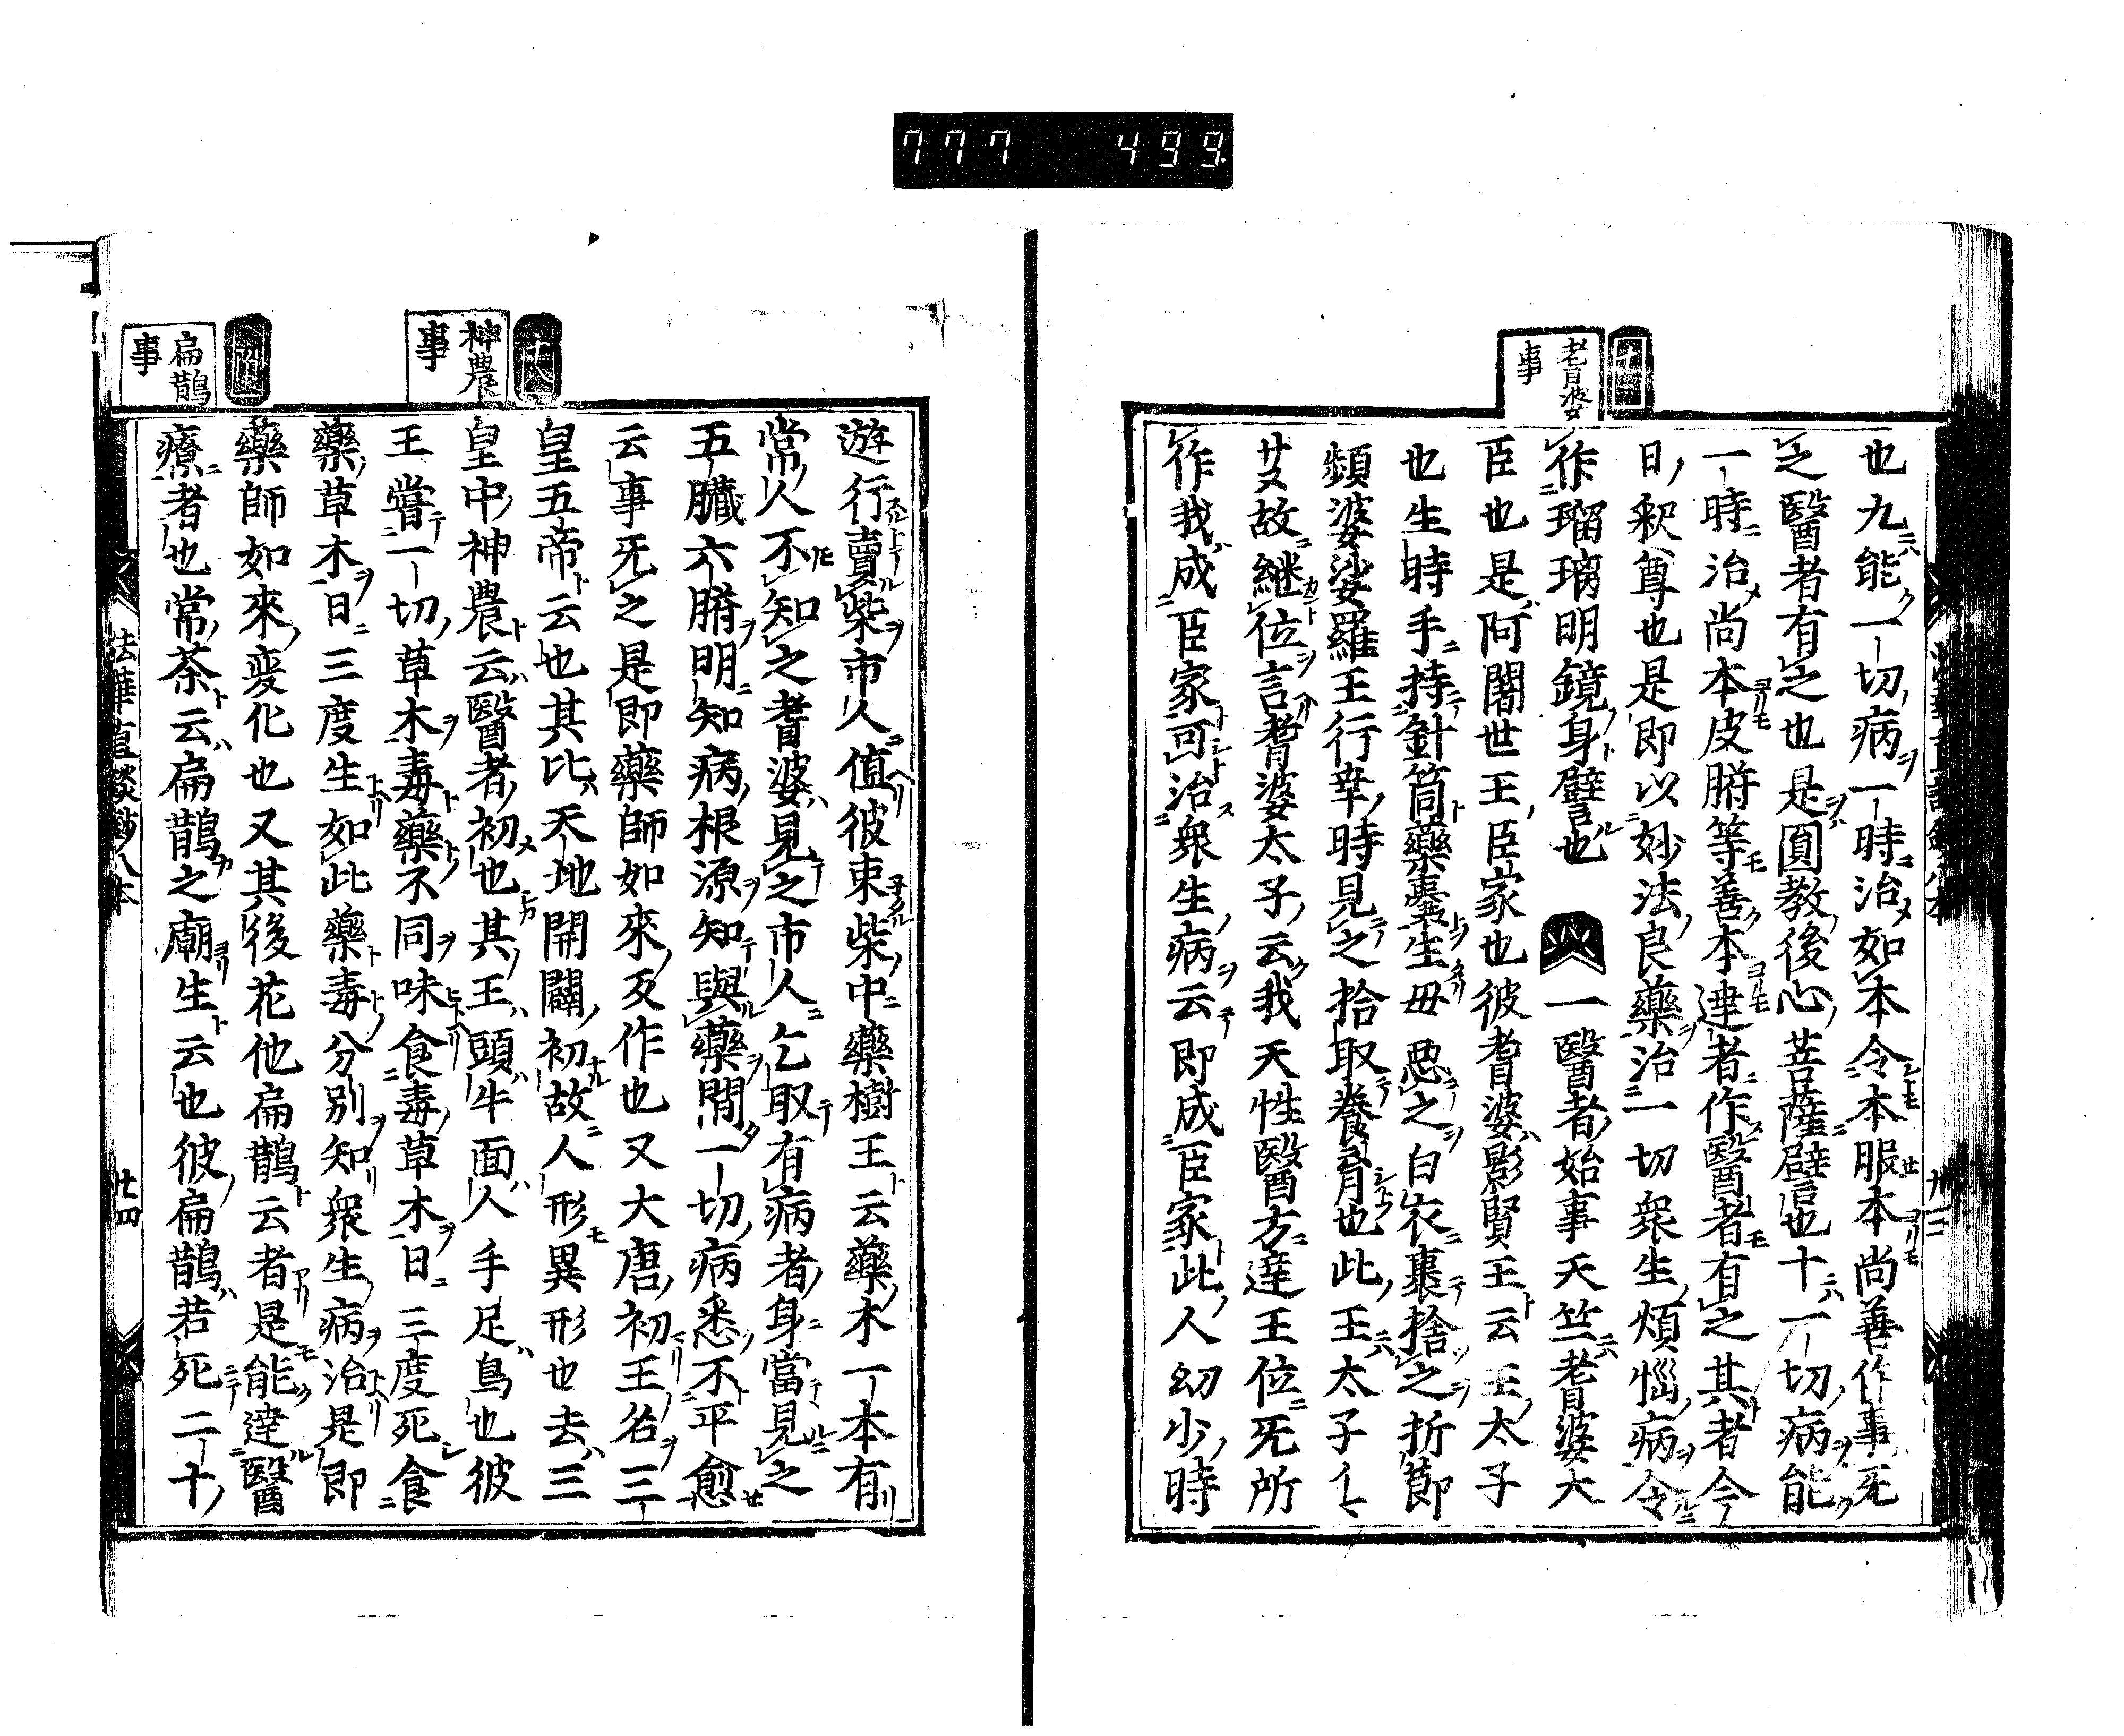 777 499
耆婆
事
也九能一切病一時治如本令本服本尚善作事死
之醫者有之也是圓教後心菩薩譬也十一切病能
一時治尚本皮腑等善本達者作醫者有之其者今
日釈尊也是即以妙法良藥治一切衆生煩惱病令
作瑠璃明鏡身譬也 一醫者始事天竺耆婆大
臣也是阿闍世王臣家也彼耆婆影賢王云王太子
也生時手持針筒藥囊生毋惡之白衣裹捨之折節
頻婆娑羅王行幸時見之拾取養育也此王太子
故継位言耆婆太子云我天性醫方達王位死所
作我成臣家可治衆生病云即成臣家此人幼少時
神農
事
扁鵲
事
遊行賣柴市人值彼束柴中藥樹王云藥木一本有
常人不知之耆婆見之市人乞取有病者身當見之
五臟六腑明知病根源知與藥間一切病悉不平愈
云事死之是即藥師如來反作也又大唐初王名三
皇五帝云也其比天地開闢初故人形異形也去三
皇中神農云醫者初也其王頭牛面人手足鳥也彼
王嘗一切草木毒藥不同味食毒草木日三度死食
藥草木日三度生如此藥毒分別知衆生病治是即
藥師如來変化也又其後花他扁鵲云者是能達醫
療者也常茶云扁鵲之廟生云也彼扁鵲若死二十
法華直談鈔八本 廿四